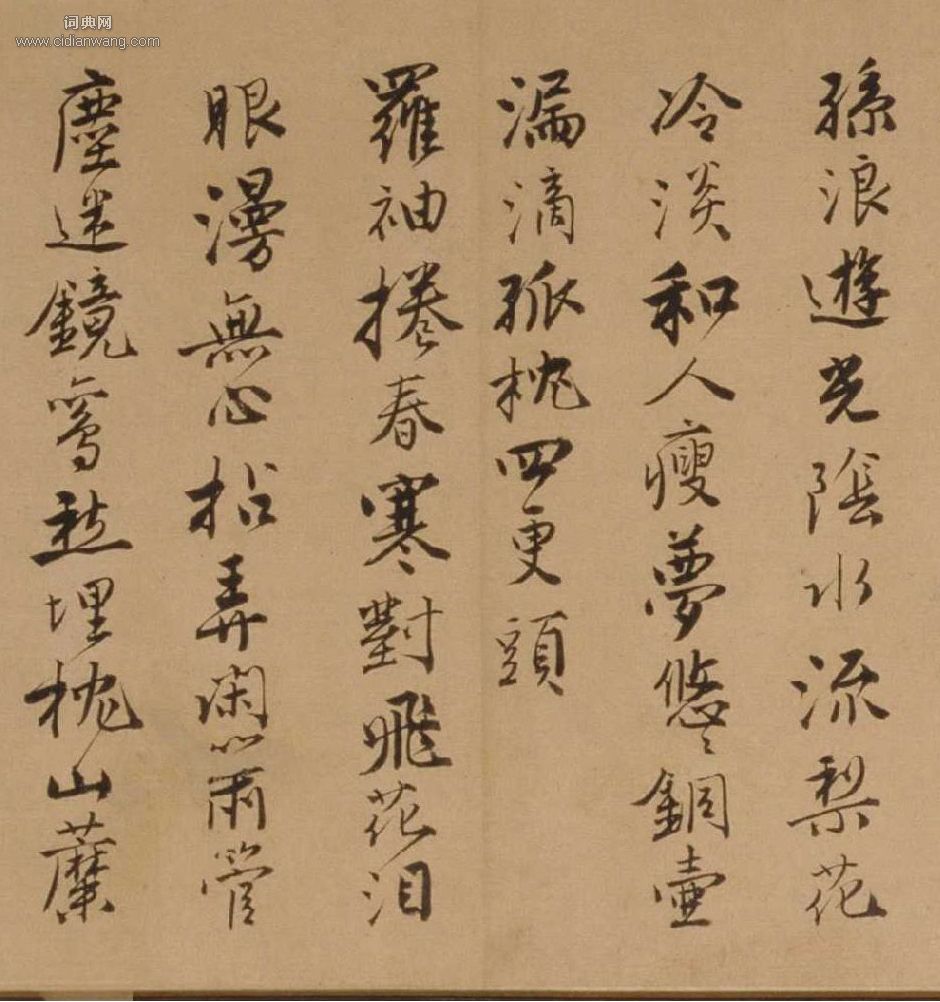 词典网
www.cidianwang.com
孫浪遊光陰水流梨花
冷淡和人瘦夢悠〻銅壺
漏滴孤枕四更頭
羅袖捲春寒對飛花泪
眼漫無心拈弄閑簫管
塵迷鏡鸞愁埋枕山蘼